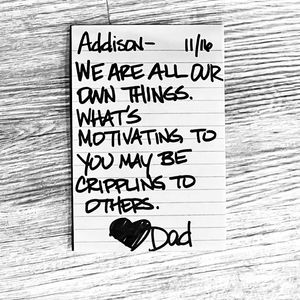 Addison- 11/16
WE ARE ALL OUR
OWN THINGS.
WHAT'S
MOTIVATING TO
YOU MAY BE
CRIPPLING TO
OTHERS.
Dad